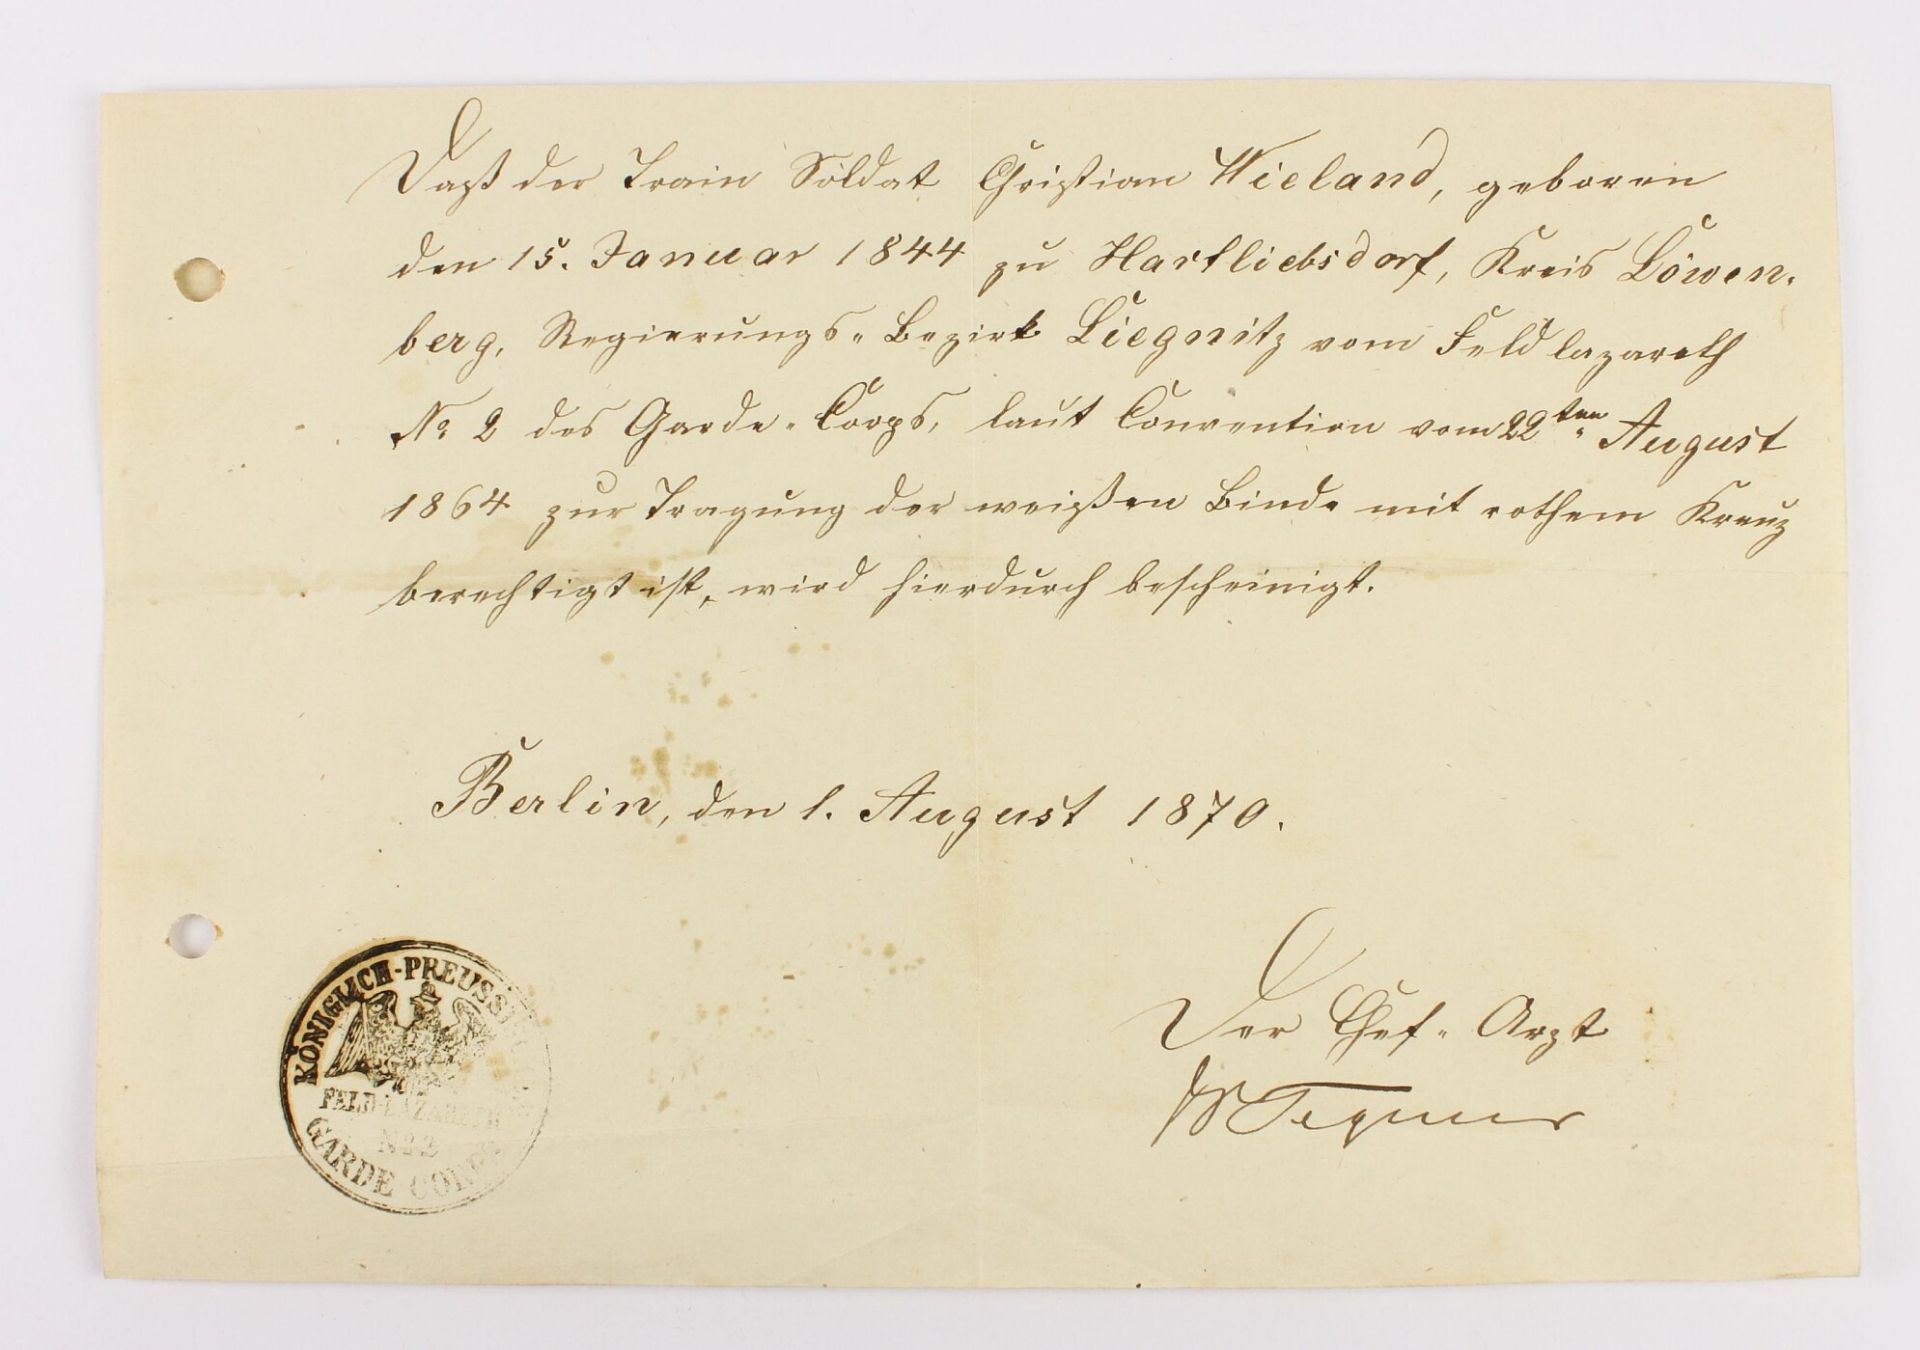 Daß der Train Soldat Christian Wieland, geboren
den 15. Januar 1844 zu Hartliebsdorf, Kreis Löwen-
berg, Regierungs-Bezirk Liegnitz vom Feldlazareth
No 2 des Garde-Corps, laut Convention vom 22ten August
1864 zur Tragung der weißen Binde mit rothem Kreuz
berechtigt ist, wird hierdurch bescheinigt.
Berlin, den 1. August 1870.
Der Chef-Arzt
KÖNIGLICH-PREUSSISCHES
FELD-LAZARETH
No 2
GARDE CORPS